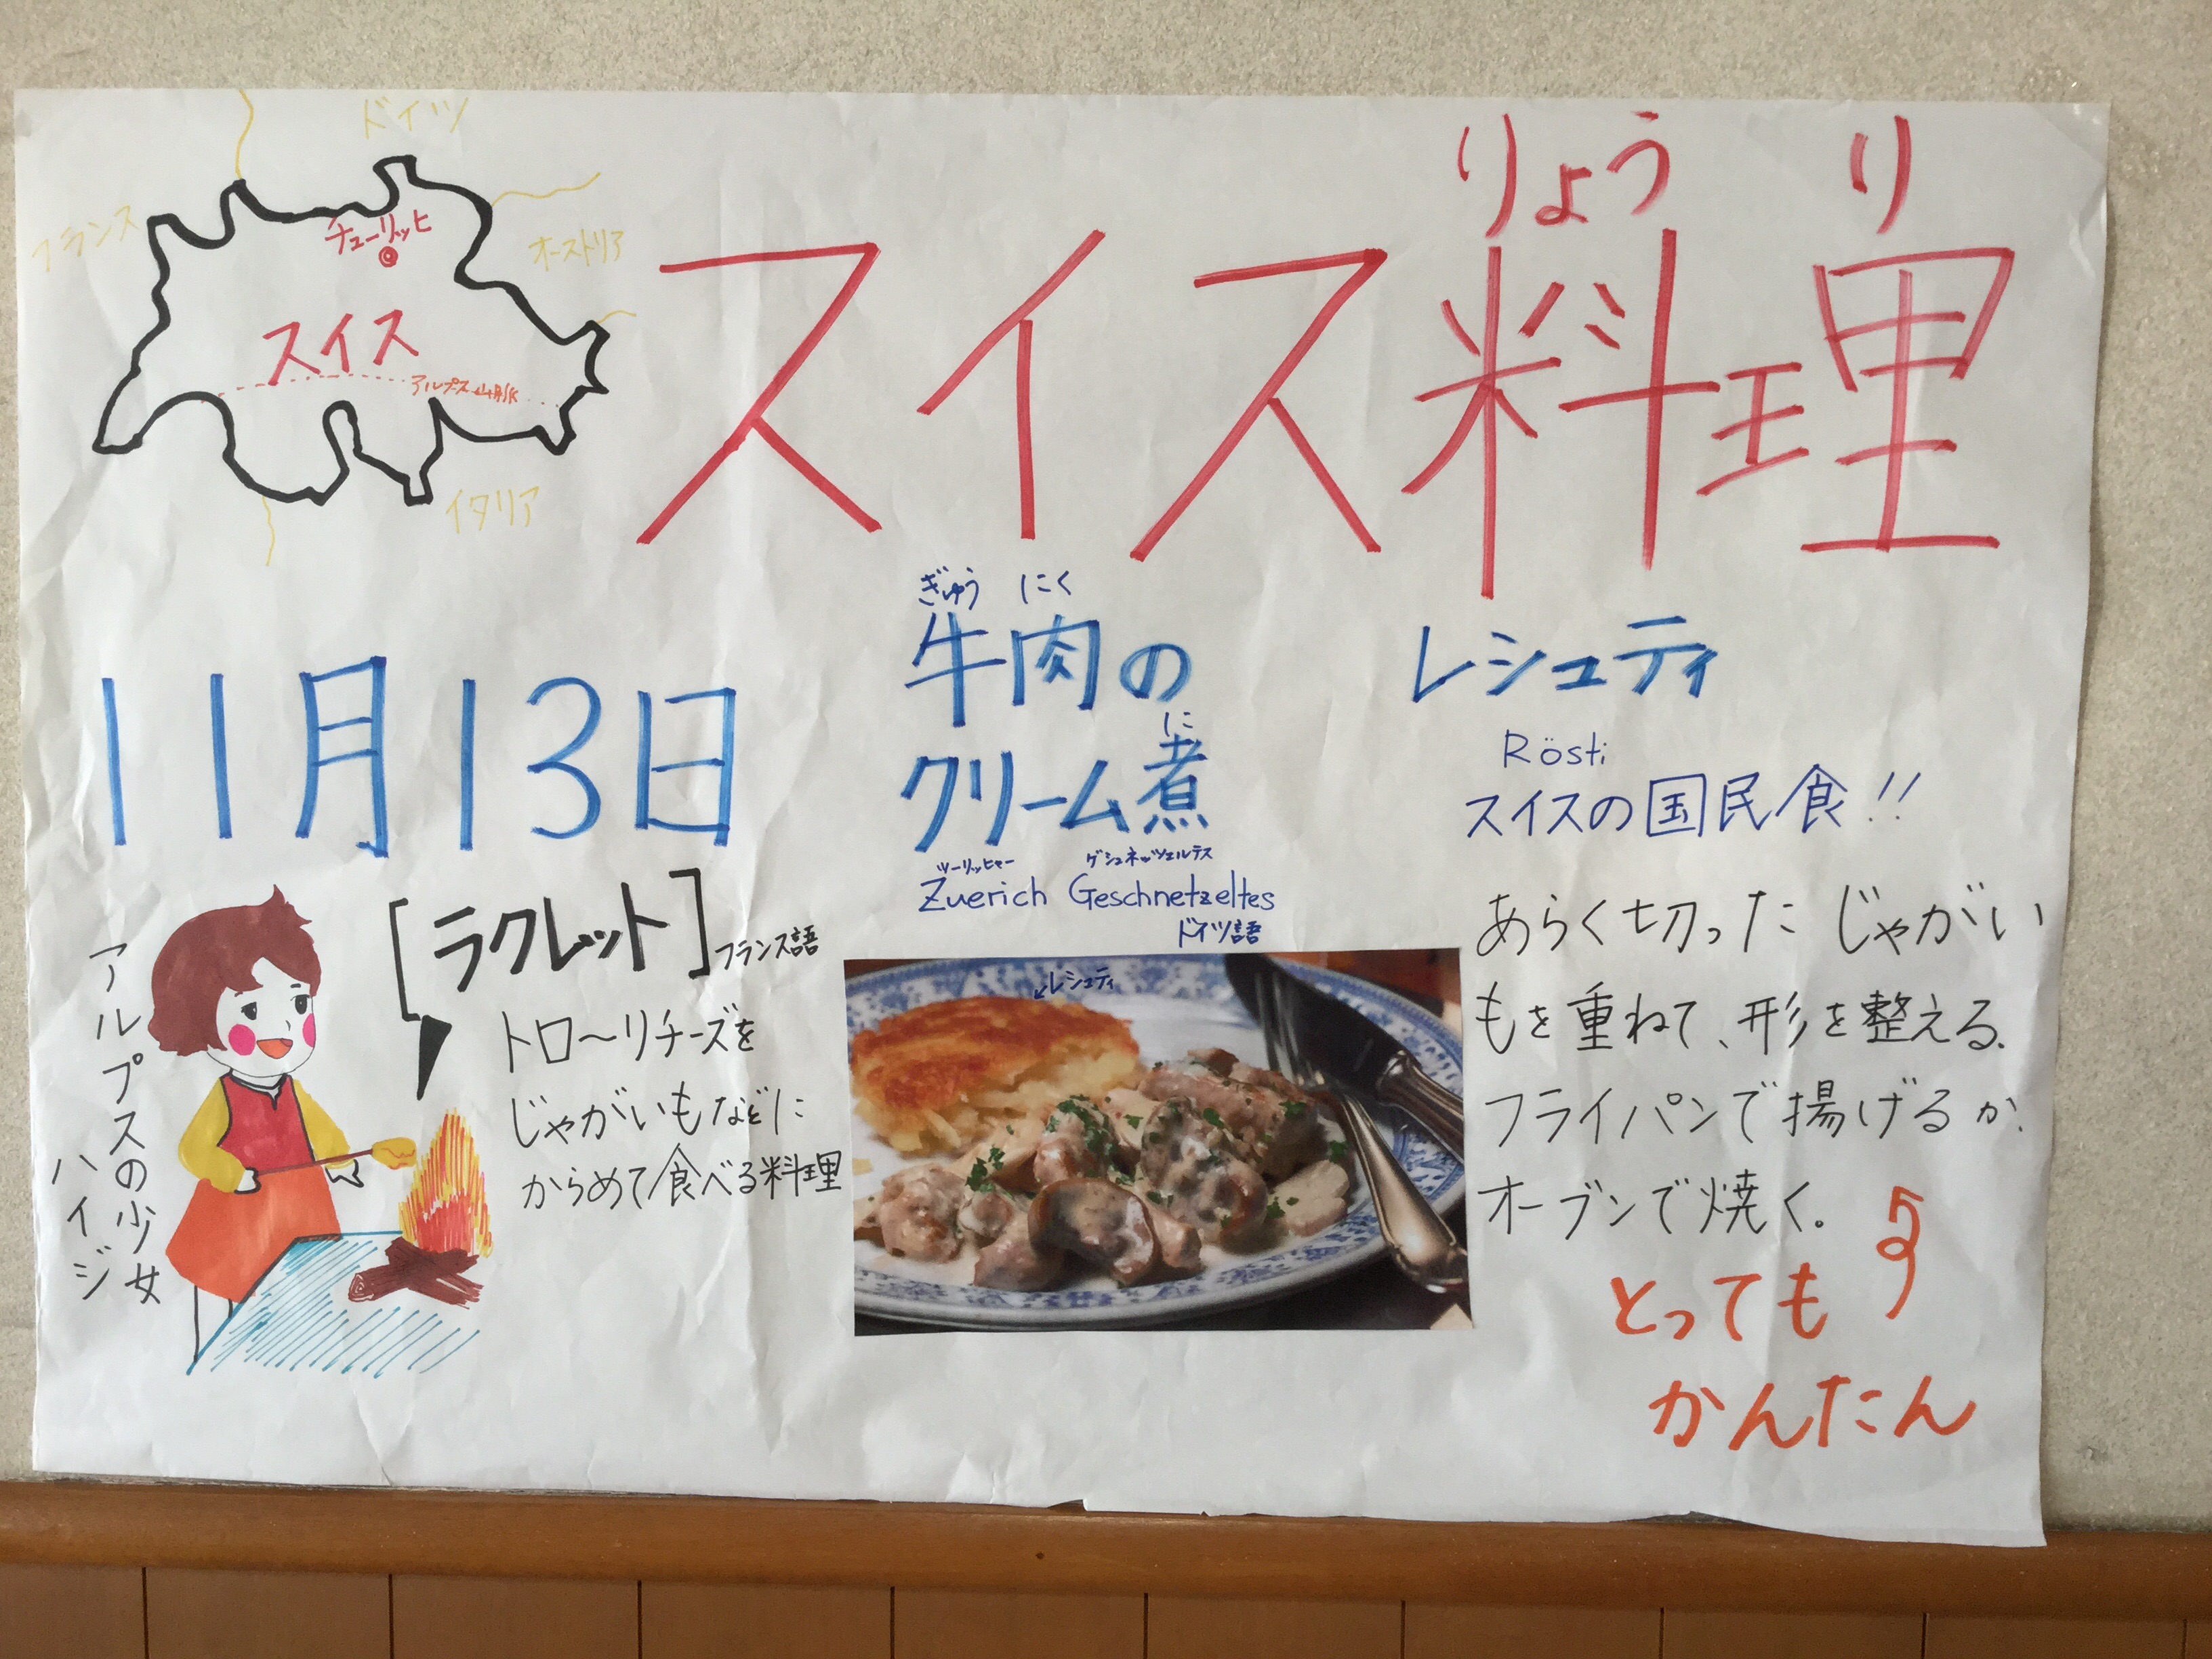 ドイツ
フランス
チューリッヒ
オーストリア
スイス
アルプス山脈
イタリア
りょう り
スイス料理
11月13日
ぎゅう にく
牛肉の
に
クリーム煮
ツーリッヒャー ゲシュネッツェルテス
Zuerich Geschnetzeltes
ドイツ語
レシュティ
Rösti
スイスの国民食!!
あらく切った じゃがい
もを重ねて、形を整える。
フライパンで揚げるか、
オーブンで焼く。
とっても
かんたん
[ラクレット]フランス語
トロ〜リチーズを
じゃがいもなどに
からめて食べる料理
アルプスの少女
ハイジ
↙レシュティ